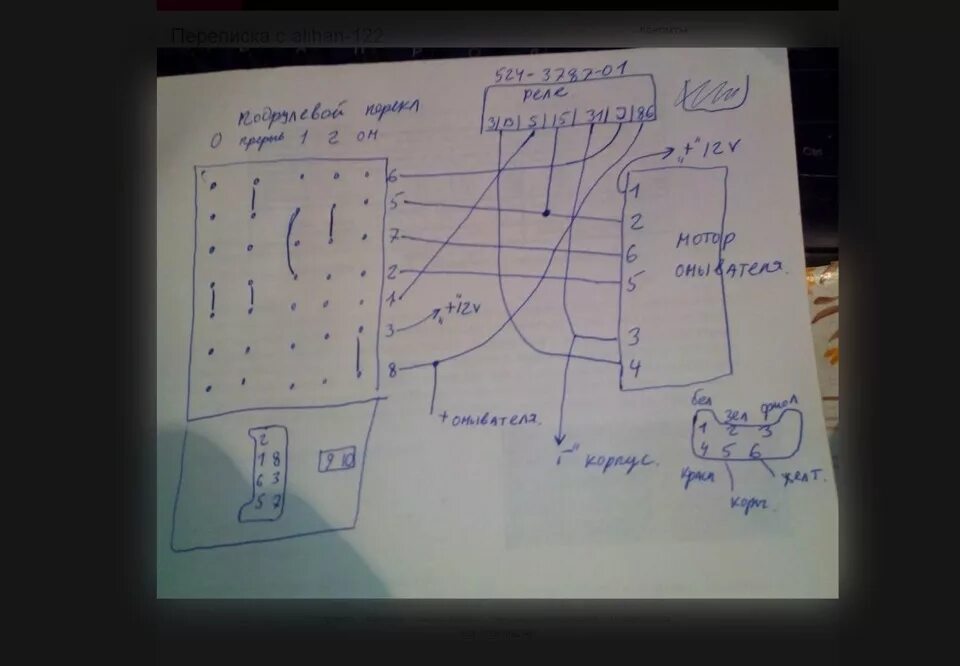 Переписка с alihan-122
контакты
524-3787-01
реле
31 15 S 15 31 J 86
Подрулевой перекл
0 прерыв 1 2 ом
6
5
7
2
1
3
8
"+"12V
+ омывателя.
"-" корпус.
"+"12V
1
2
6
5
3
4
мотор
омывателя.
бел зел фиол
1 2 3
4 5 6
красн желт.
корич.
2
1 8
6 3
5 7
9 10